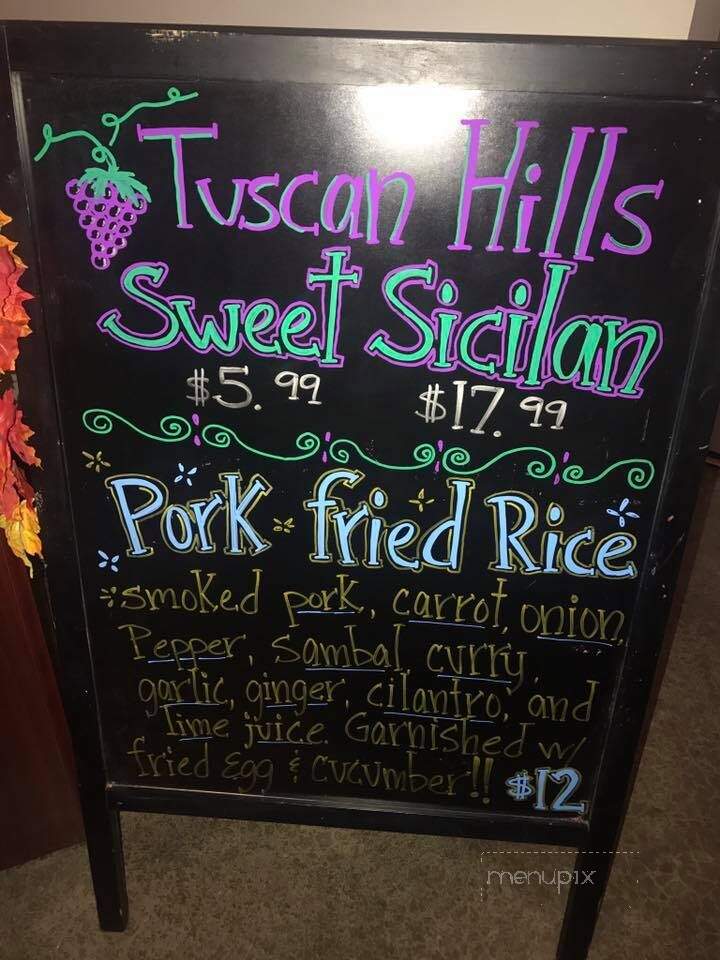 Tuscan Hills
Sweet Sicilan
$5.99 $17.99
Pork fried Rice
smoked pork, carrot, onion,
Pepper, Sambal, curry,
garlic, ginger, cilantro, and
lime juice. Garnished w/
fried Egg & cucumber!! $12
menupix